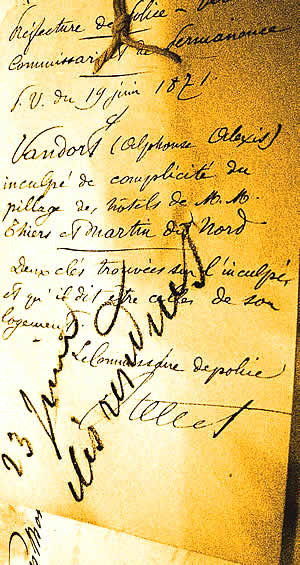 Préfecture de Police –
Commissariat de Permanence
P. V. du 19 juin 1871.
Vandort (Alphonse Alexis)
inculpé de complicité du
pillage des hôtels de M. M.
Thiers et Martin du Nord
Deux clés trouvées sur l'inculpé
et qu'il dit être celles de son
logement
Le Commissaire de police
23 juin
clés rendues